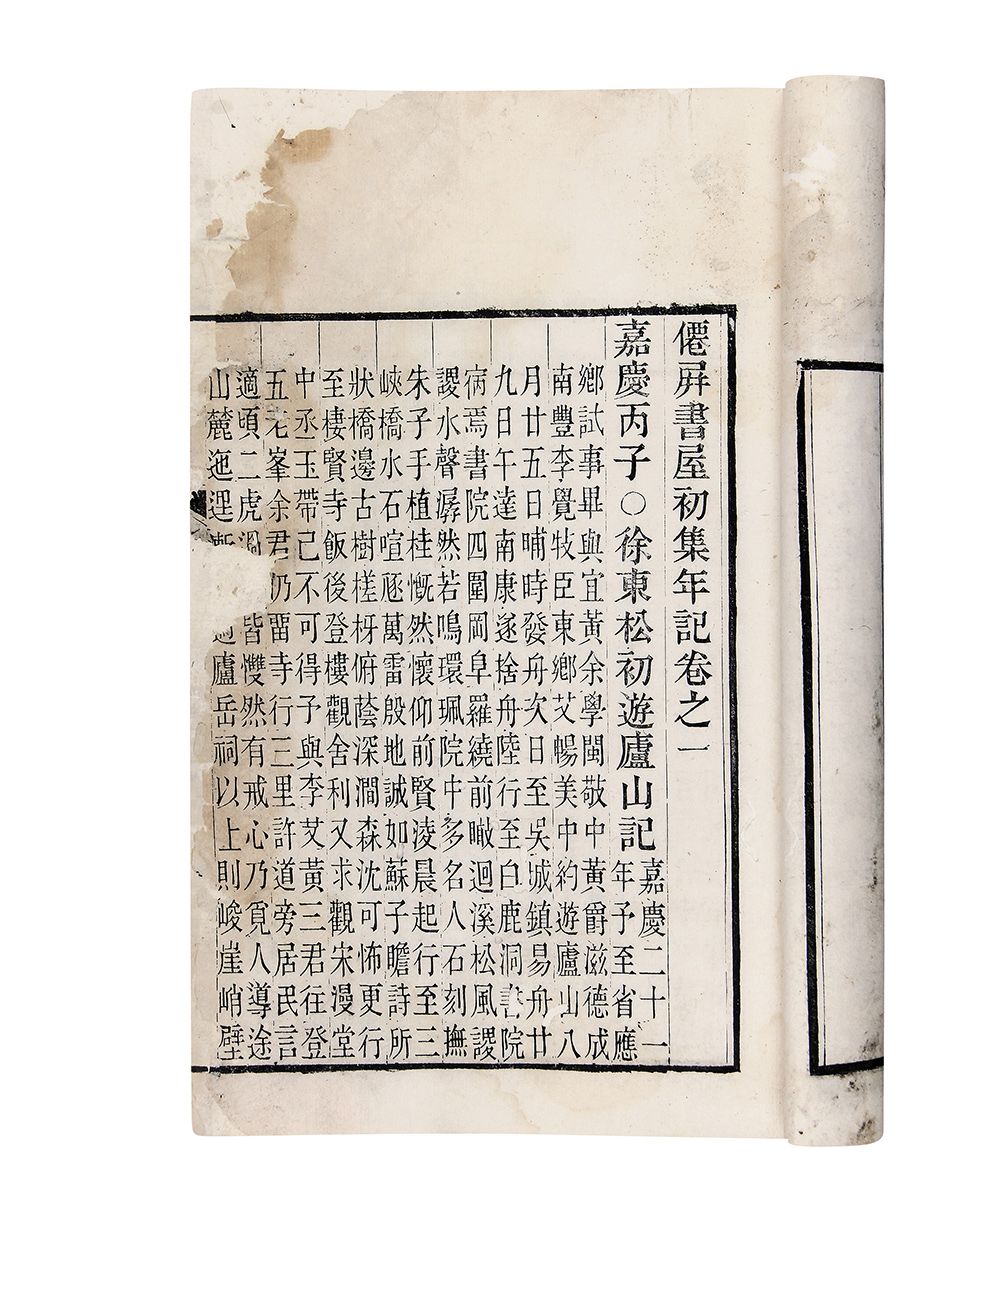 僊屛書屋初集年記卷之一
嘉慶丙子〇徐東松初遊廬山記
嘉慶二十一
年予至省應
鄉試事畢與宜黃余學閩敬中黃爵滋德成
南豐李覺牧臣東鄉艾暢美中約遊廬山八
月廿五日晡時發舟次日至吳城鎮易舟廿
九日午達南康遂捨舟陸行至白鹿洞書院
病焉書院四圍岡阜羅繞前瞰迴溪松風謖
謖水聲潺然若鳴環珮院中多名人石刻撫
朱子手植桂慨然懷仰前賢凌晨起行至三
峽橋水石喧豗萬雷殷地誠如蘇子瞻詩所
狀橋邊古樹槎枒俯蔭深澗森沈可怖更行
至棲賢寺飯後登樓觀舍利又求觀宋漫堂
中丞玉帶己不可得予與李艾黃三君往登
五老峯余君仍畱寺行三里許道旁居民言
適頃二虎過皆然有戒心乃覓人導途
山麓迤邐過廬岳祠以上則峻崖峭壁